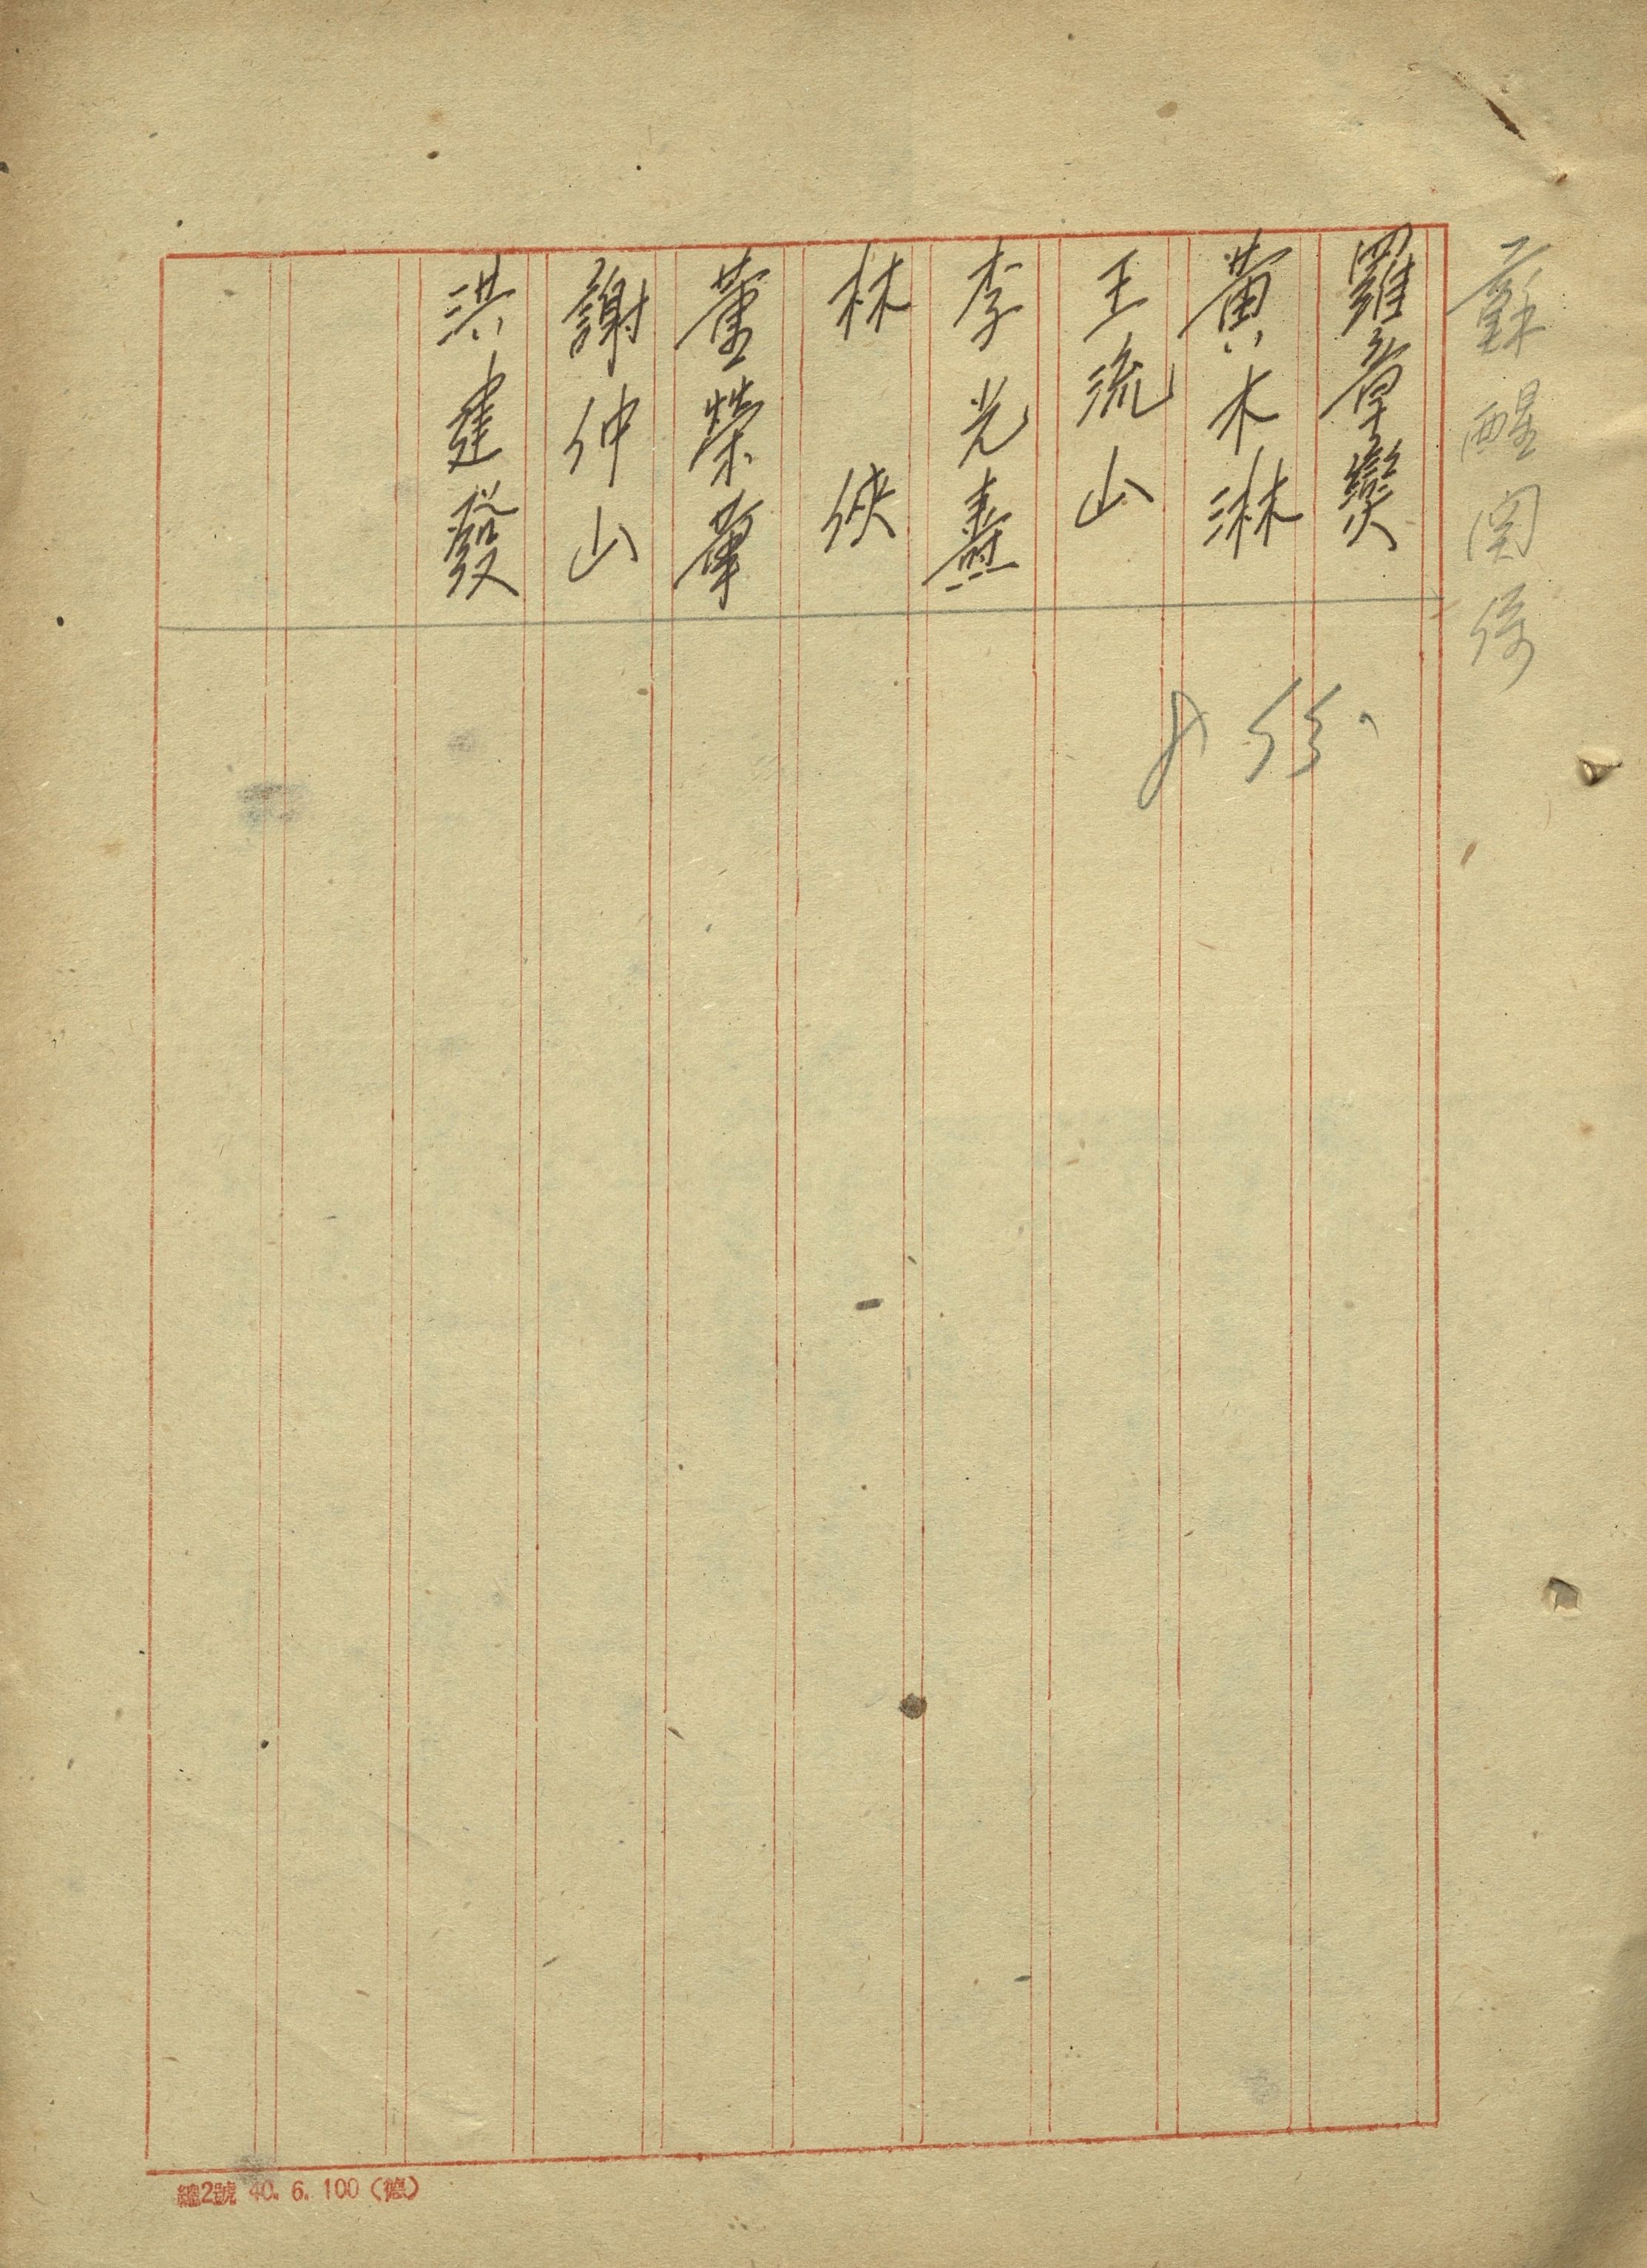 蘇醒関係
羅章燮
黄木淋
王流山
李光壽
林俠
董榮華
謝仲山
洪建發
8份
總2號 40. 6. 100 (德)